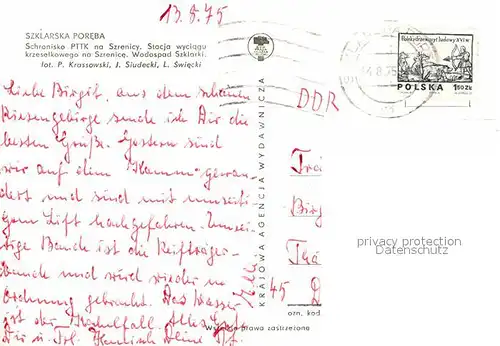 13.8.75
SZKLARSKA PORĘBA
Schronisko PTTK na Szrenicy. Stacja wyciągu
krzesełkowego na Szrenicę. Wodospad Szklarki.
fot. P. Krassowski, J. Siudecki, L. Święcki
Liebe Birgit, aus dem schönen
Riesengebirge sende ich Dir die
besten Grüße. Gestern sind
wir auf dem Kamm gewan-
dert und sind mit umseiti-
gem Lift hochgefahren. Umsei-
tige Baude ist die Reifträger-
baude und wird wieder in
Ordnung gebracht. Das Wasser
ist der Kochelfall. Alles Gute
Dir u. Frl. Deine
KRAJOWA AGENCJA WYDAWNICZA
Wszelkie prawa zastrzeżone
DDR
Birg
45
ozn. kod
Polski drzeworyt ludowy XVI w.
POLSKA 1.50 ZŁ
privacy protection
Datenschutz